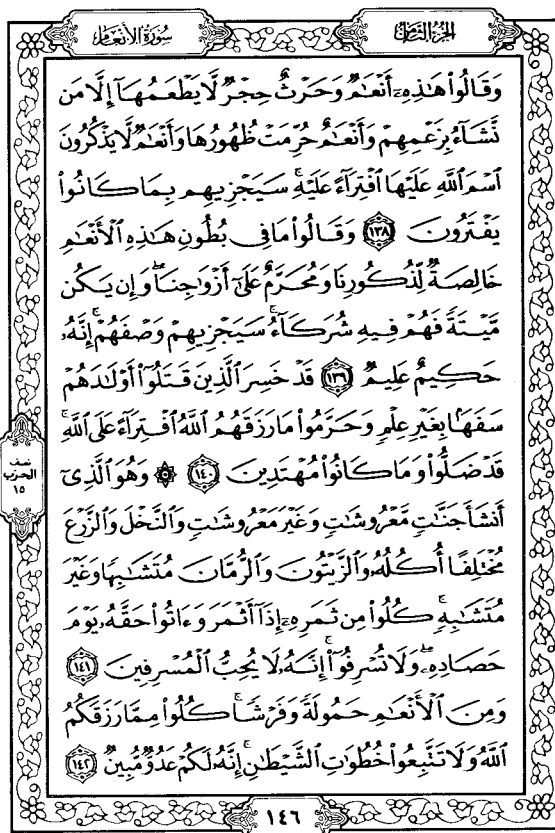 سورة الأنعام
الجزء الثامن
وَقَالُوا۟ هَٰذِهِۦٓ أَنْعَٰمٌ وَحَرْثٌ حِجْرٌ لَّا يَطْعَمُهَآ إِلَّا مَن
نَّشَآءُ بِزَعْمِهِمْ وَأَنْعَٰمٌ حُرِّمَتْ ظُهُورُهَا وَأَنْعَٰمٌ لَّا يَذْكُرُونَ
ٱسْمَ ٱللَّهِ عَلَيْهَا ٱفْتِرَآءً عَلَيْهِ ۚ سَيَجْزِيهِم بِمَا كَانُوا۟
يَفْتَرُونَ ١٣٨ وَقَالُوا۟ مَا فِى بُطُونِ هَٰذِهِ ٱلْأَنْعَٰمِ
خَالِصَةٌ لِّذُكُورِنَا وَمُحَرَّمٌ عَلَىٰٓ أَزْوَٰجِنَا ۖ وَإِن يَكُن
مَّيْتَةً فَهُمْ فِيهِ شُرَكَآءُ ۚ سَيَجْزِيهِمْ وَصْفَهُمْ ۚ إِنَّهُۥ
حَكِيمٌ عَلِيمٌ ١٣٩ قَدْ خَسِرَ ٱلَّذِينَ قَتَلُوٓا۟ أَوْلَٰدَهُمْ
سَفَهًۢا بِغَيْرِ عِلْمٍ وَحَرَّمُوا۟ مَا رَزَقَهُمُ ٱللَّهُ ٱفْتِرَآءً عَلَى ٱللَّهِ ۚ
قَدْ ضَلُّوا۟ وَمَا كَانُوا۟ مُهْتَدِينَ ١٤٠ ۞ وَهُوَ ٱلَّذِىٓ
أَنشَأَ جَنَّٰتٍ مَّعْرُوشَٰتٍ وَغَيْرَ مَعْرُوشَٰتٍ وَٱلنَّخْلَ وَٱلزَّرْعَ
مُخْتَلِفًا أُكُلُهُۥ وَٱلزَّيْتُونَ وَٱلرُّمَّانَ مُتَشَٰبِهًا وَغَيْرَ
مُتَشَٰبِهٍ ۚ كُلُوا۟ مِن ثَمَرِهِۦٓ إِذَآ أَثْمَرَ وَءَاتُوا۟ حَقَّهُۥ يَوْمَ
حَصَادِهِۦ ۖ وَلَا تُسْرِفُوٓا۟ ۚ إِنَّهُۥ لَا يُحِبُّ ٱلْمُسْرِفِينَ ١٤١
وَمِنَ ٱلْأَنْعَٰمِ حَمُولَةً وَفَرْشًا ۚ كُلُوا۟ مِمَّا رَزَقَكُمُ
ٱللَّهُ وَلَا تَتَّبِعُوا۟ خُطُوَٰتِ ٱلشَّيْطَٰنِ ۚ إِنَّهُۥ لَكُمْ عَدُوٌّ مُّبِينٌ ١٤٢
نصف
الحزب
١٥
١٤٦